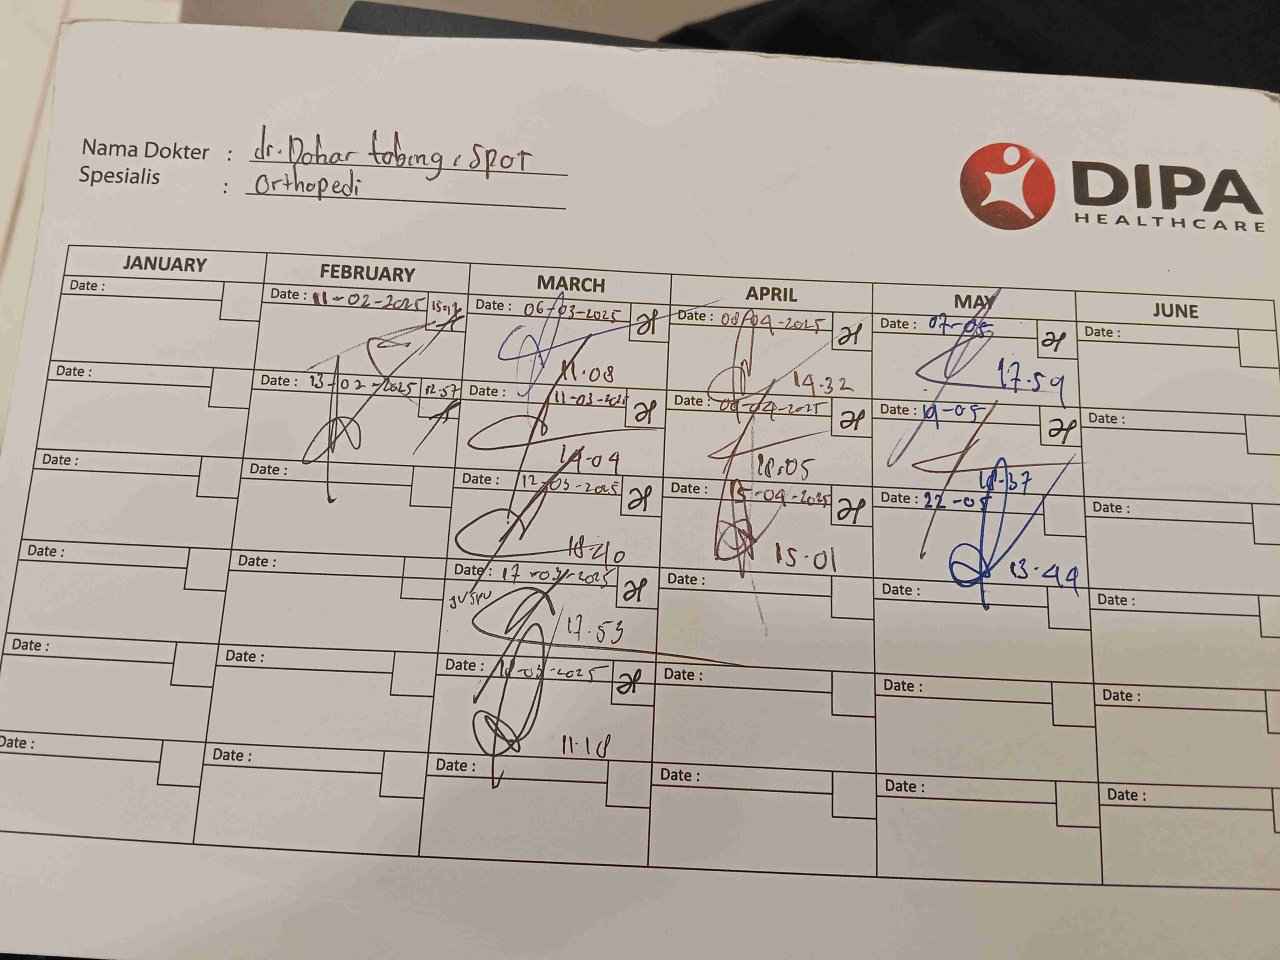 Nama Dokter : dr. Dohar tobing, SpOT
Spesialis : Orthopedi
DIPA
HEALTHCARE
JANUARY FEBRUARY MARCH APRIL MAY JUNE
Date : Date : 11-02-2025 Date : 06-03-2025 Date : 08-04-2025 Date : 07-05 Date :
11.08 14.32 17.59
Date : Date : 13-02-2025 12.57 Date : 11-03-2025 Date : 08-04-2025 Date : 19-05 Date :
19.09 18.05 18.37
Date : Date : Date : 12-03-2025 Date : 15-04-2025 Date : 22-05 Date :
18.40 15.01 13.44
Date : Date : Date : 17-03-2025 Date : Date : Date :
17.53
Date : Date : Date : 18-03-2025 Date : Date : Date :
11.18
Date : Date : Date : Date : Date : Date :